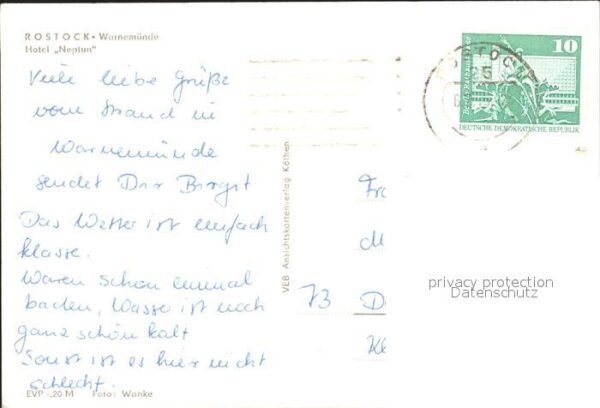 ROSTOCK - Warnemünde
Hotel „Neptun"
Viele liebe Grüße
vom Strand in
Warnemünde
sendet Dir Birgit
Das Wetter ist einfach
klasse.
Waren schon einmal
baden, Wasser ist noch
ganz schön kalt
Sonst ist es hier nicht
schlecht.
EVP -,20 M Foto: Wanke
VEB Ansichtskartenverlag Köthen
ROSTOCK
10
DEUTSCHE DEMOKRATISCHE REPUBLIK
Fr
73 D
privacy protection
Datenschutz